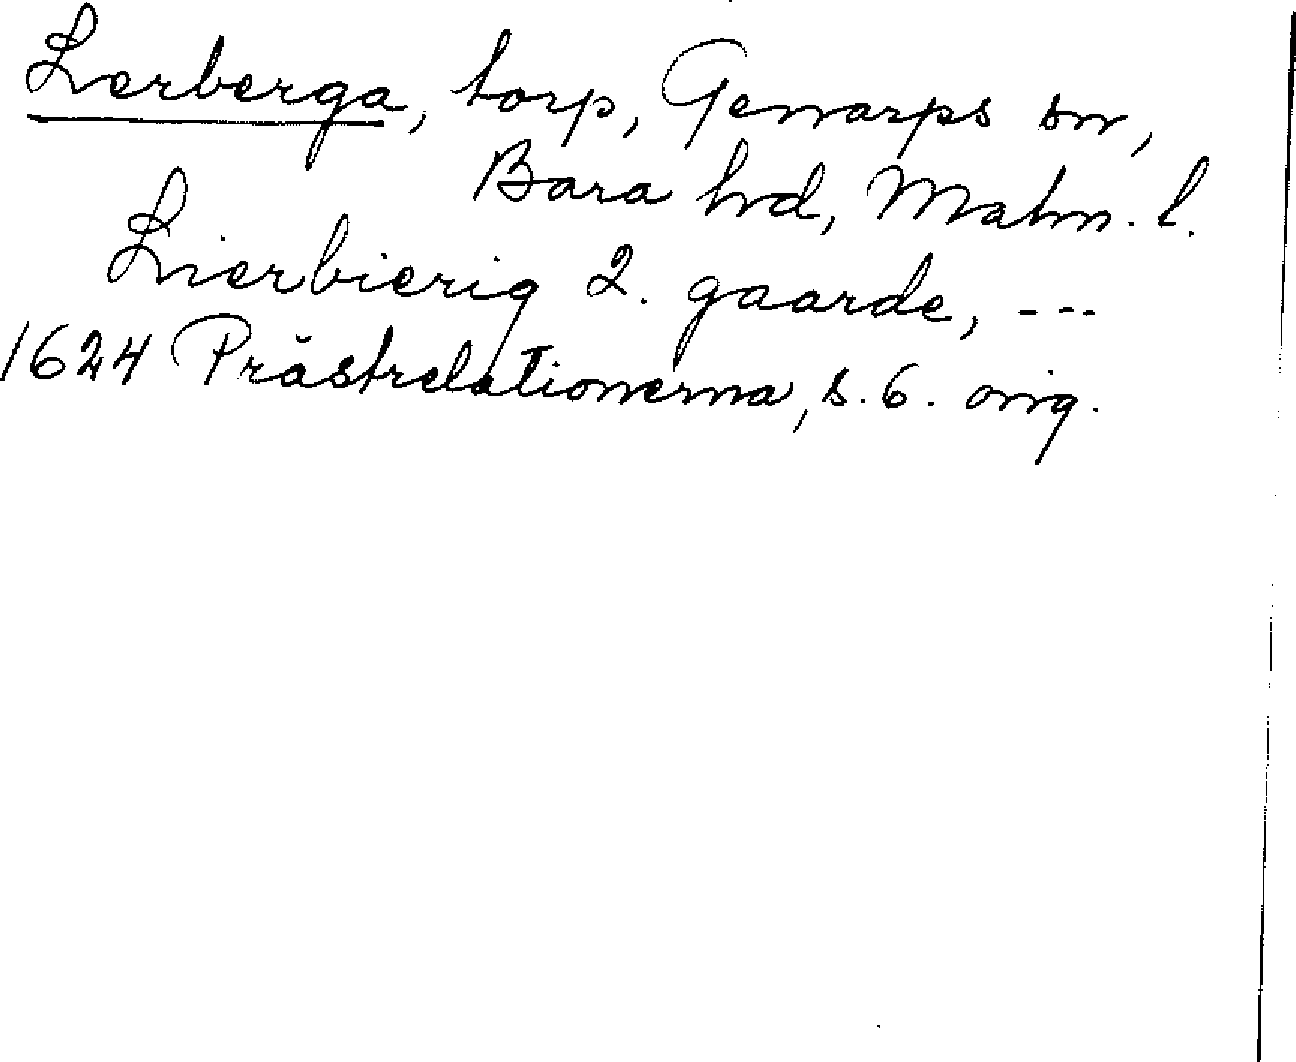 Lerberga, torp, Genarps sn,
Bara hrd, Malm. l.
Lierbierig 2. gaarde, ---
1624 Prästrelationerna, s. 6. orig.